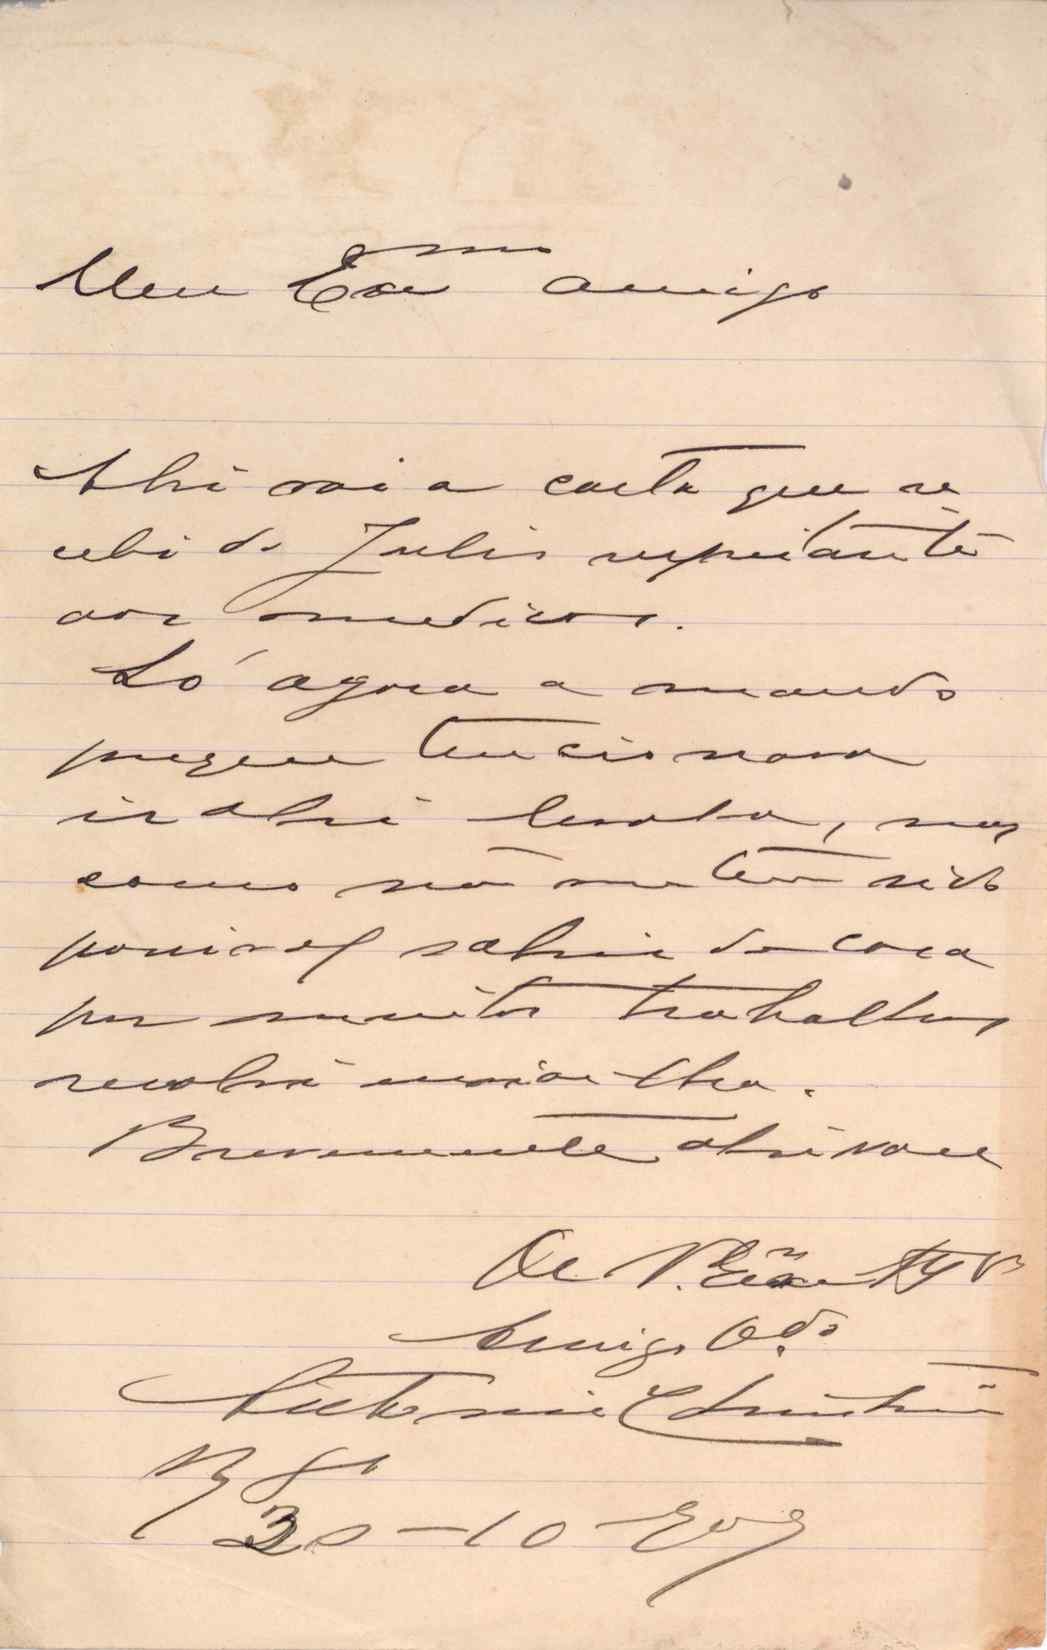 Meu Exmo amigo
Ahi vai a carta que re
cebi do Julio respeitante
aos medicos.
Só agora a mando
porque tencionava
ir ahi leval-a, mas
como não me tem sido
possivel sahir de casa
por muitos trabalhos
resolvi enviar-lha.
Brevemente ahi vou
De V. Exa
Amigo Obdo
Antonio Christino
30-10-909